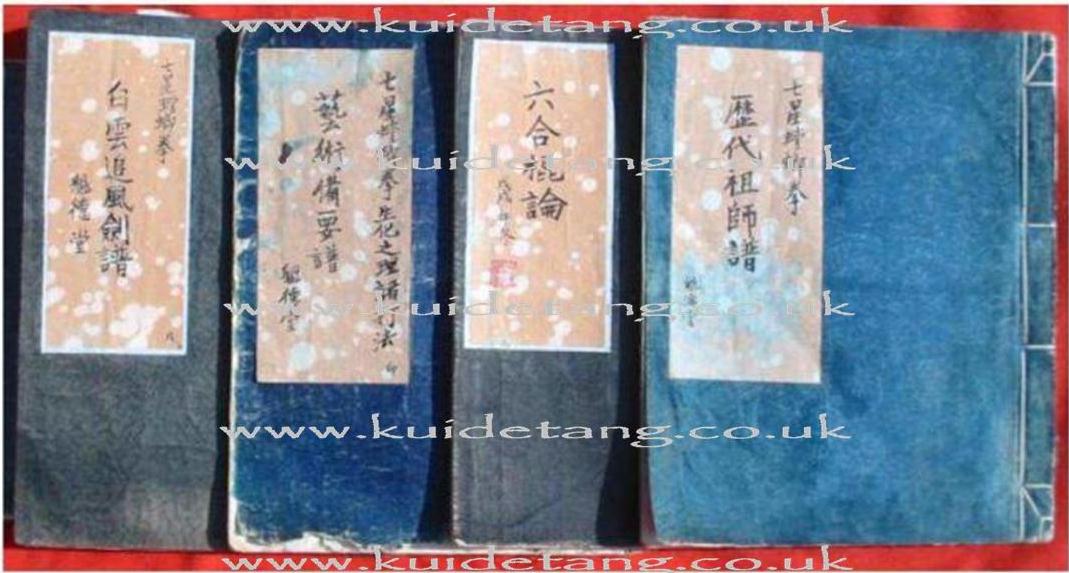 www.kuidetang.co.uk
七星螳螂拳
白雲追風劍譜
魁德堂
七星螳螂拳生化之理
藝術備要譜
魁德堂
六合棍論
七星螳螂拳
歷代祖師譜
www.kuidetang.co.uk
www.kuidetang.co.uk
www.kuidetang.co.uk
www.kuidetang.co.uk